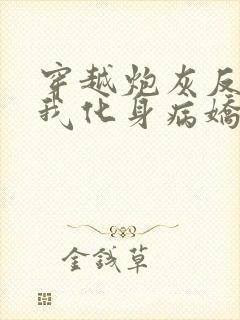 穿越炮灰反
我化身病娇
金钱草